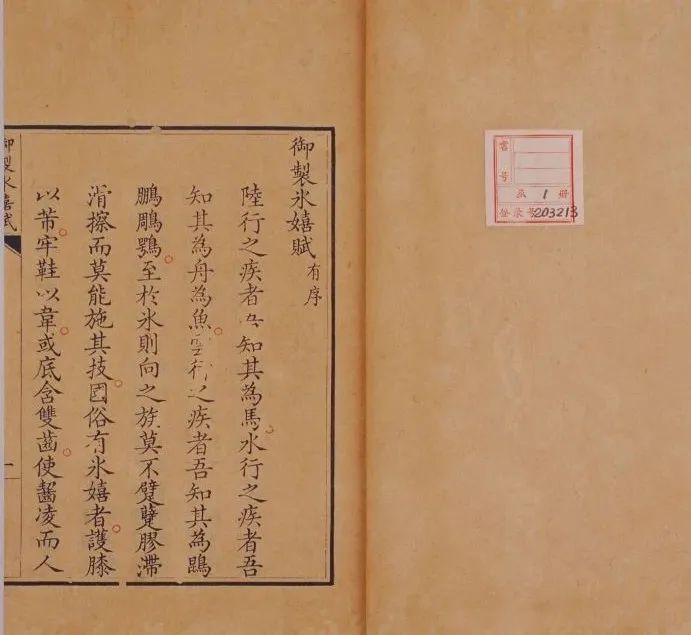 号
1 册
登录号203213
御製氷嬉賦有序
陸行之疾者吾知其為馬水行之疾者吾
知其為舟為魚雲行之疾者吾知其為鵾
鵬鵰鶚至於氷則向之族莫不躄躠膠滯
滑擦而莫能施其技國俗有氷嬉者護膝
以芾牢鞋以韋或底含雙齒使齧凌而人
御製氷嬉賦
一